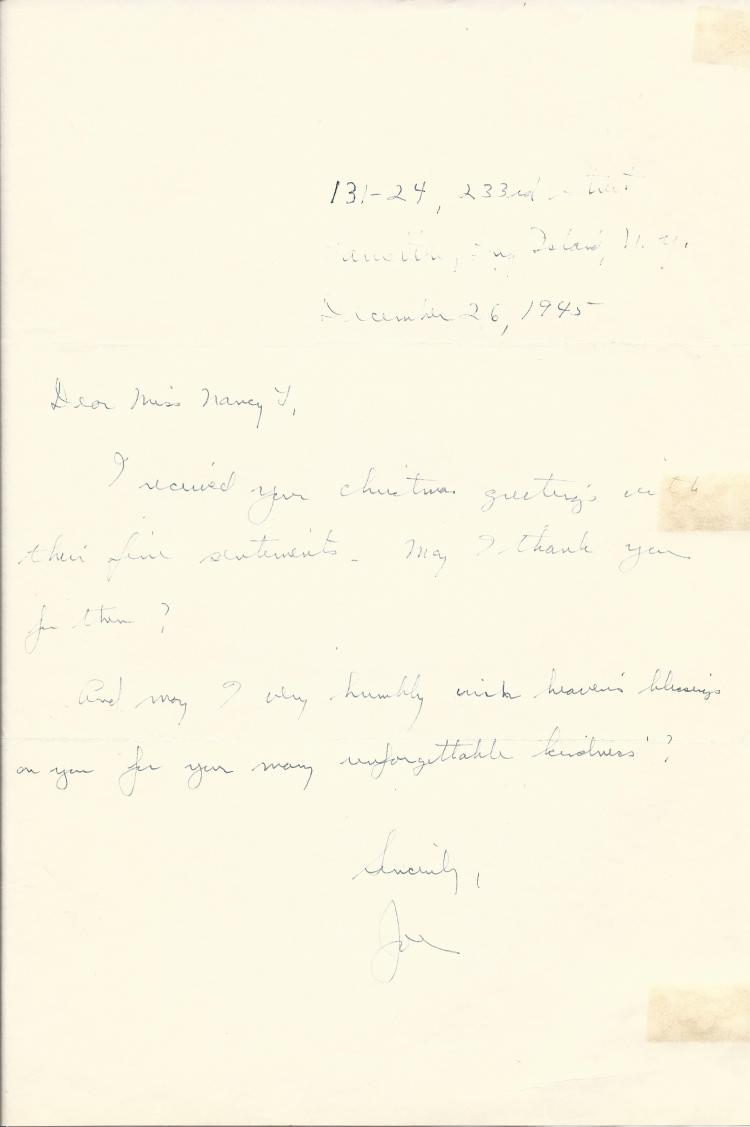 131-24, 233rd Street
Island, N.Y.
December 26, 1945
Dear Miss Nancy Y,
I received your christmas greetings with
their fine sentements. May I thank you
for them?
And may I very humbly wish heaven's blessings
on you for your many unforgettable kindness'?
Sincerely,
Joe